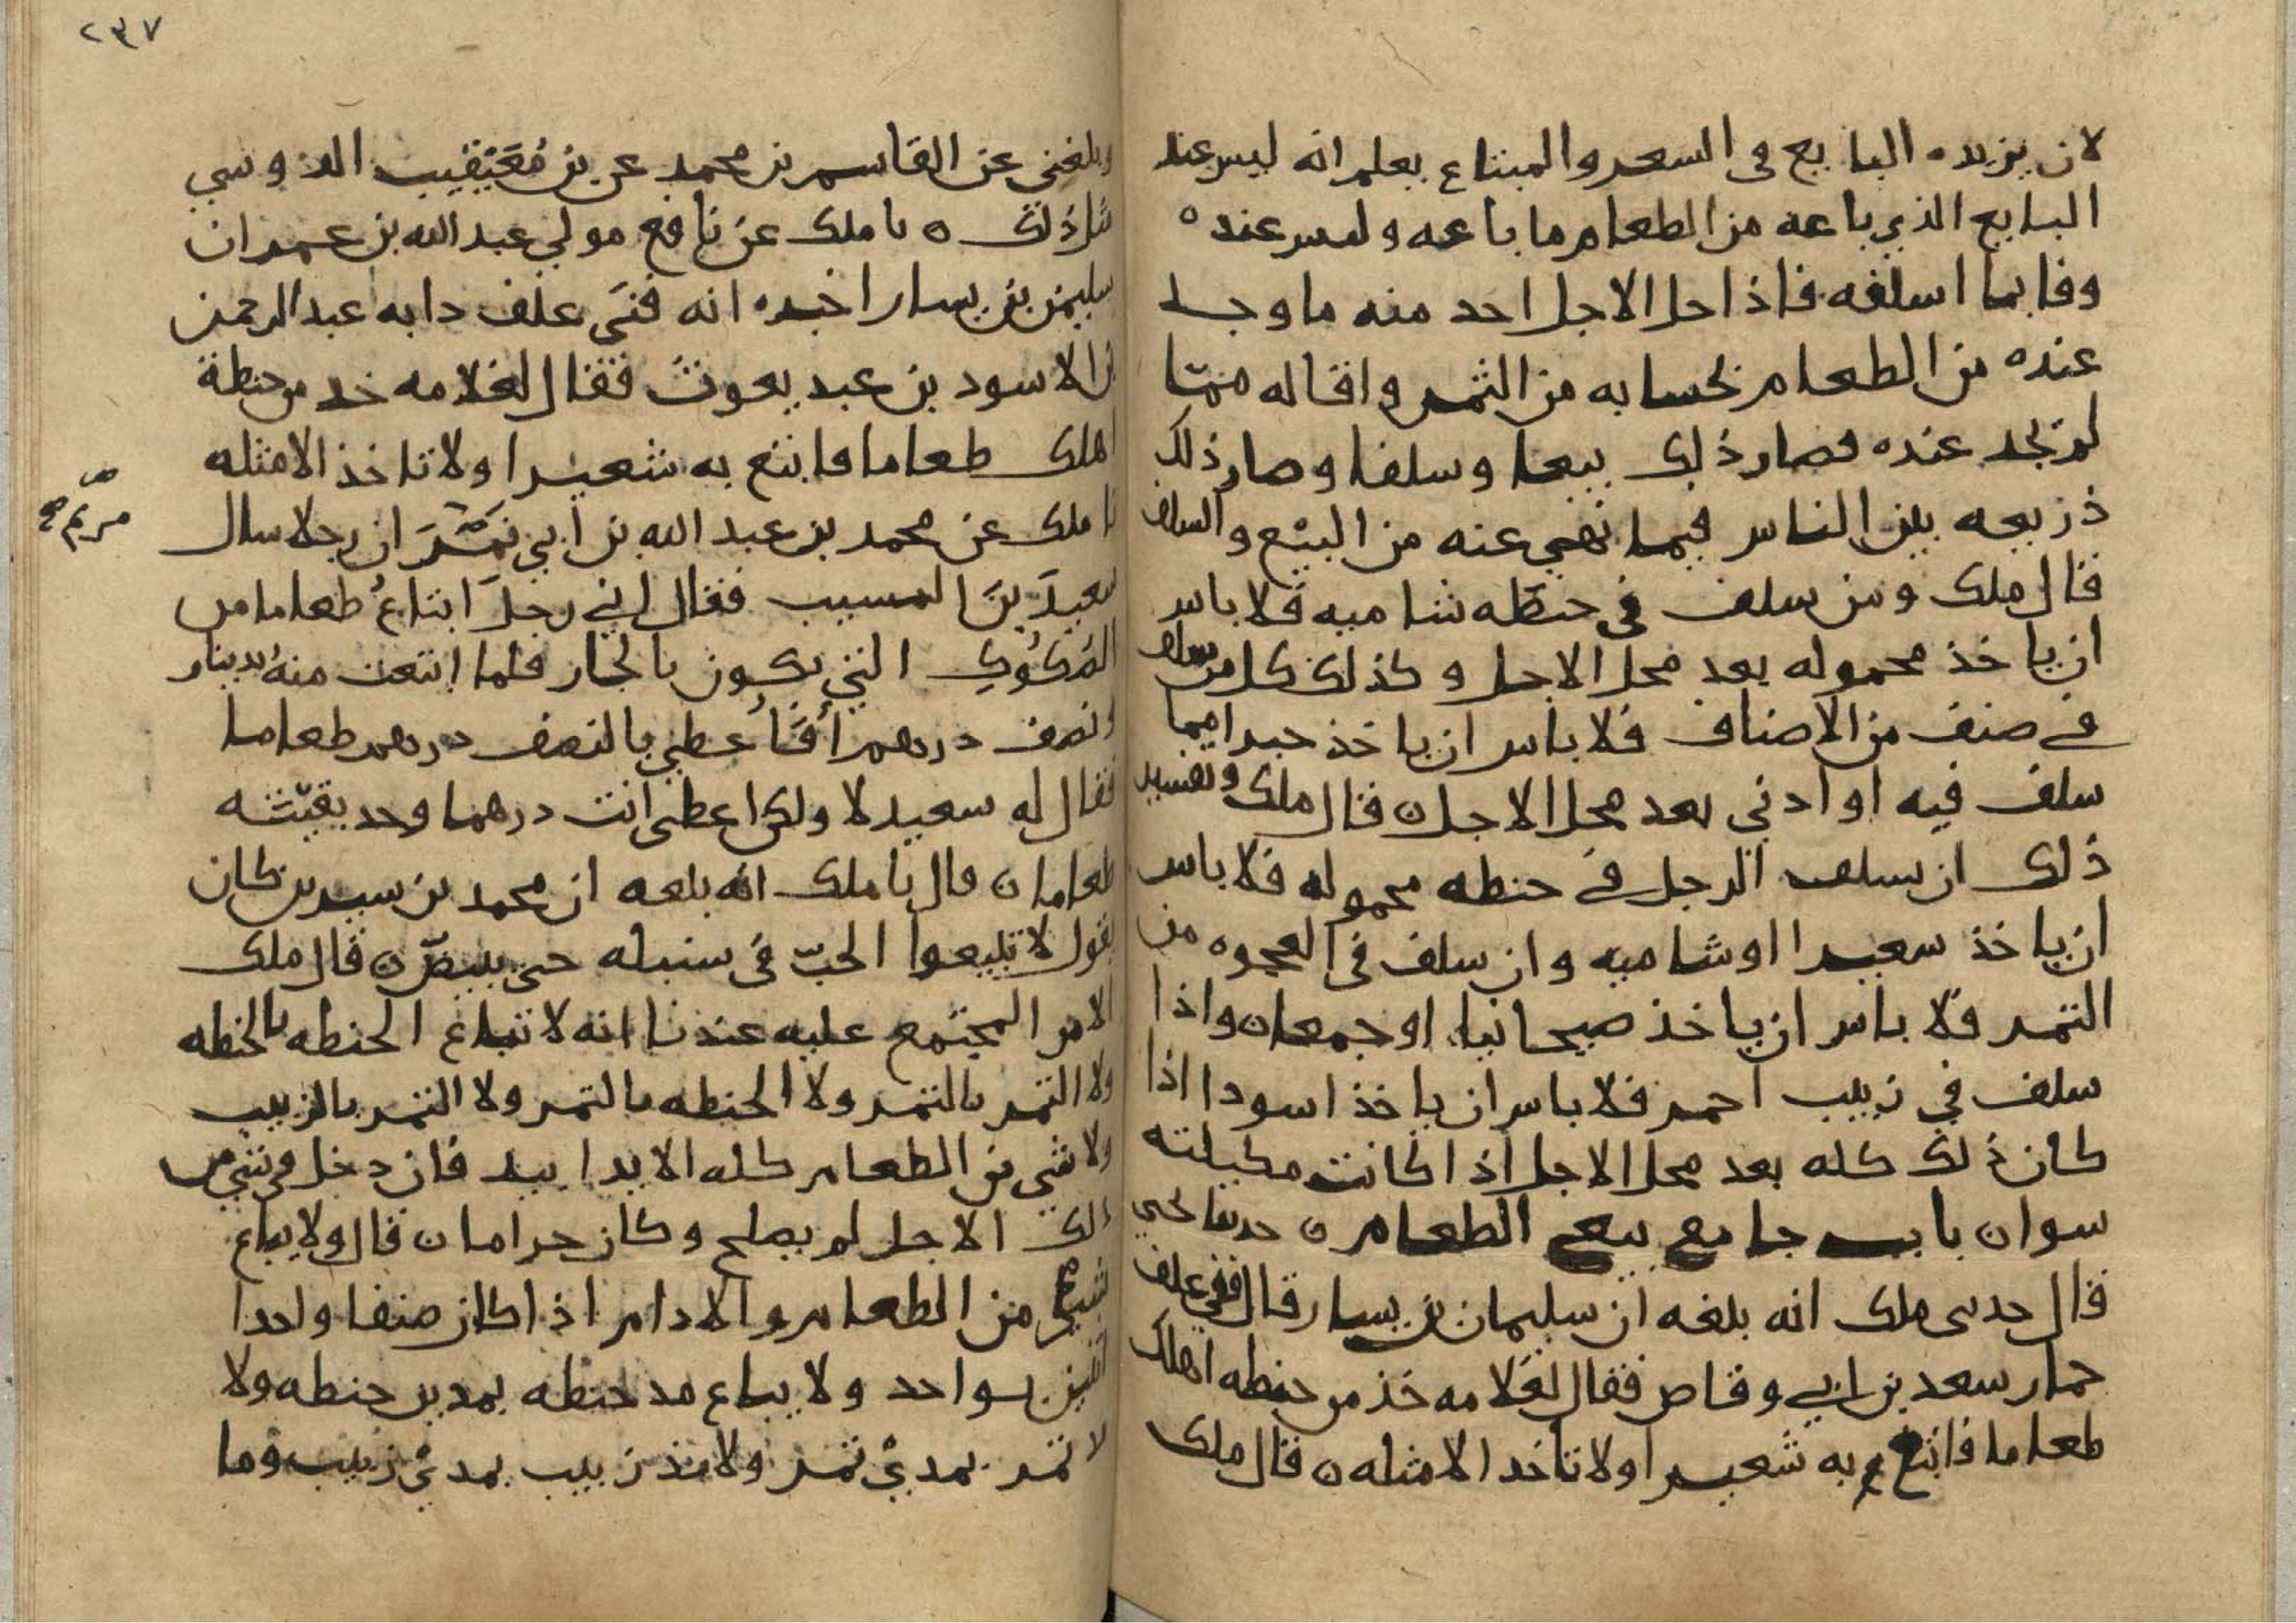 لان يزيده البايع فى السعر والمبتاع يعلم انه ليس عند
البايع الذي باعه من الطعام ما باعه وليس عنده
وفا بما اسلفه فاذا حل الاجل احد منه ما وجد
عنده من الطعام بحسابه من الثمر واقاله مما
لم يجد عنده فصار ذلك بيعا وسلفا وصار ذلك
ذريعه بين الناس فيما نهي عنه من البيع والسلف
قال ملك ومن سلف في حنطه شاميه فلا باس
ان ياخذ محموله بعد محل الاجل وكذلك كل من سلف
في صنف من الاصناف فلا باس ان ياخذ خيرا مما
سلف فيه او ادني بعد محل الاجل ه قال ملك وتفسير
ذلك ان يسلف الرجل في حنطه محموله فلا باس
ان ياخذ شعيرا او شاميه وان سلف في العجوه من
التمر فلا باس ان ياخذ صيحانيا او جمعا ه واذا
سلف في زبيب احمر فلا باس ان ياخذ اسودا اذا
كان ذلك كله بعد محل الاجل اذا كانت مكيلته
سوا ه باب جامع بيع الطعام ه حدثنا يحيى
قال حدثني ملك انه بلغه ان سليمان بن يسار قال فني علف
حمار سعد بن ابي وقاص فقال لغلامه خذ من حنطه اهلك
طعاما فابتع به شعيرا ولا تاخد الا مثله ه قال ملك
٢٣٧
وبلغني عن القاسم بن محمد عن بن معيقيب الدوسي
مثل ذلك ه نا ملك عن نافع مولي عبد الله بن عمر ان
سليمن بن يسار اخبره انه فني علف دابه عبد الرحمن
بن الاسود بن عبد يغوث فقال لغلامه خد من حنطة
اهلك طعاما فابتع به شعيرا ولا تاخذ الا مثله
نا ملك عن محمد بن عبد الله بن ابي ان رجلا سال
مريم
سعيد بن المسيب فقال اني رجل ابتاع طعاما من
الصكوك التي تكون بالجار فلما ابتعت منه بدينار
ونصف درهم افاعطي بالنصف درهم طعاما
فقال له سعيد لا ولكن اعطى انت درهما وخد بقيته
طعاما ه قال نا ملك انه بلغه ان محمد بن سيرين كان
يقول لا تبيعوا الحب في سنبله حتى يبيض ه قال ملك
الامر المجتمع عليه عندنا انه لا تباع الحنطه بالحنطه
ولا التمر بالتمر ولا الحنطه بالتمر ولا التمر بالزبيب
ولا شي من الطعام كله الا يدا بيد فان دخل في شي من
ذلك الاجل لم يصلح وكان حراما ه قال ولا يباع
شي من الطعام والادام اذا كان صنفا واحدا
اثنين بواحد ولا يباع مد حنطه بمدين حنطه ولا
لا تمر بمدي تمر ولا مد زبيب بمدي زبيب وما